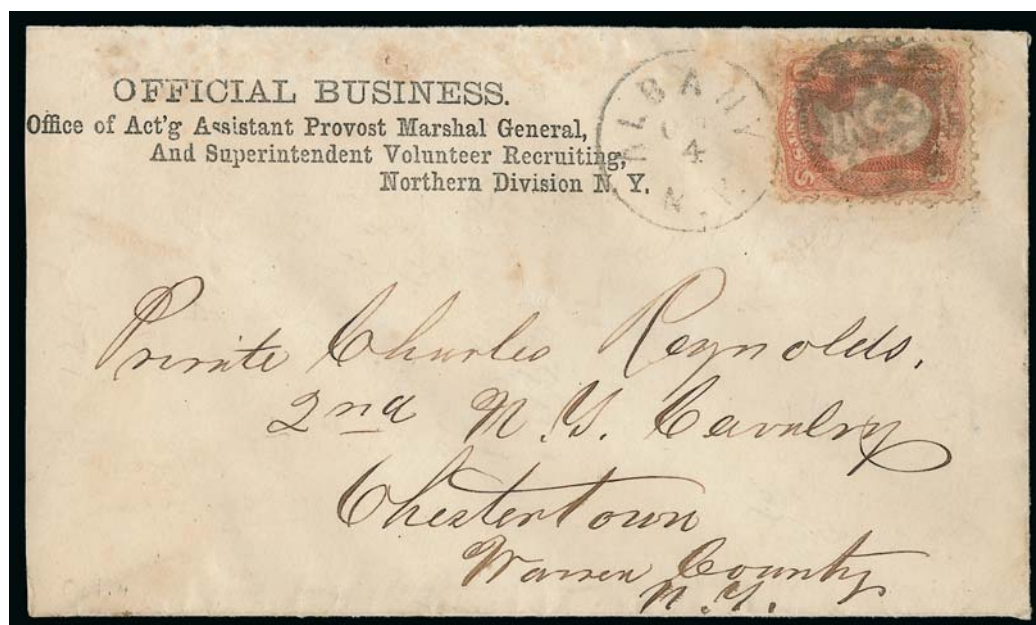 OFFICIAL BUSINESS.
Office of Act'g Assistant Provost Marshal General,
And Superintendent Volunteer Recruiting,
Northern Division N. Y.
ALBANY
4
N.Y.
Private Charles Reynolds.
2nd N.Y. Cavalry
Chestertown
Warren County
N.Y.